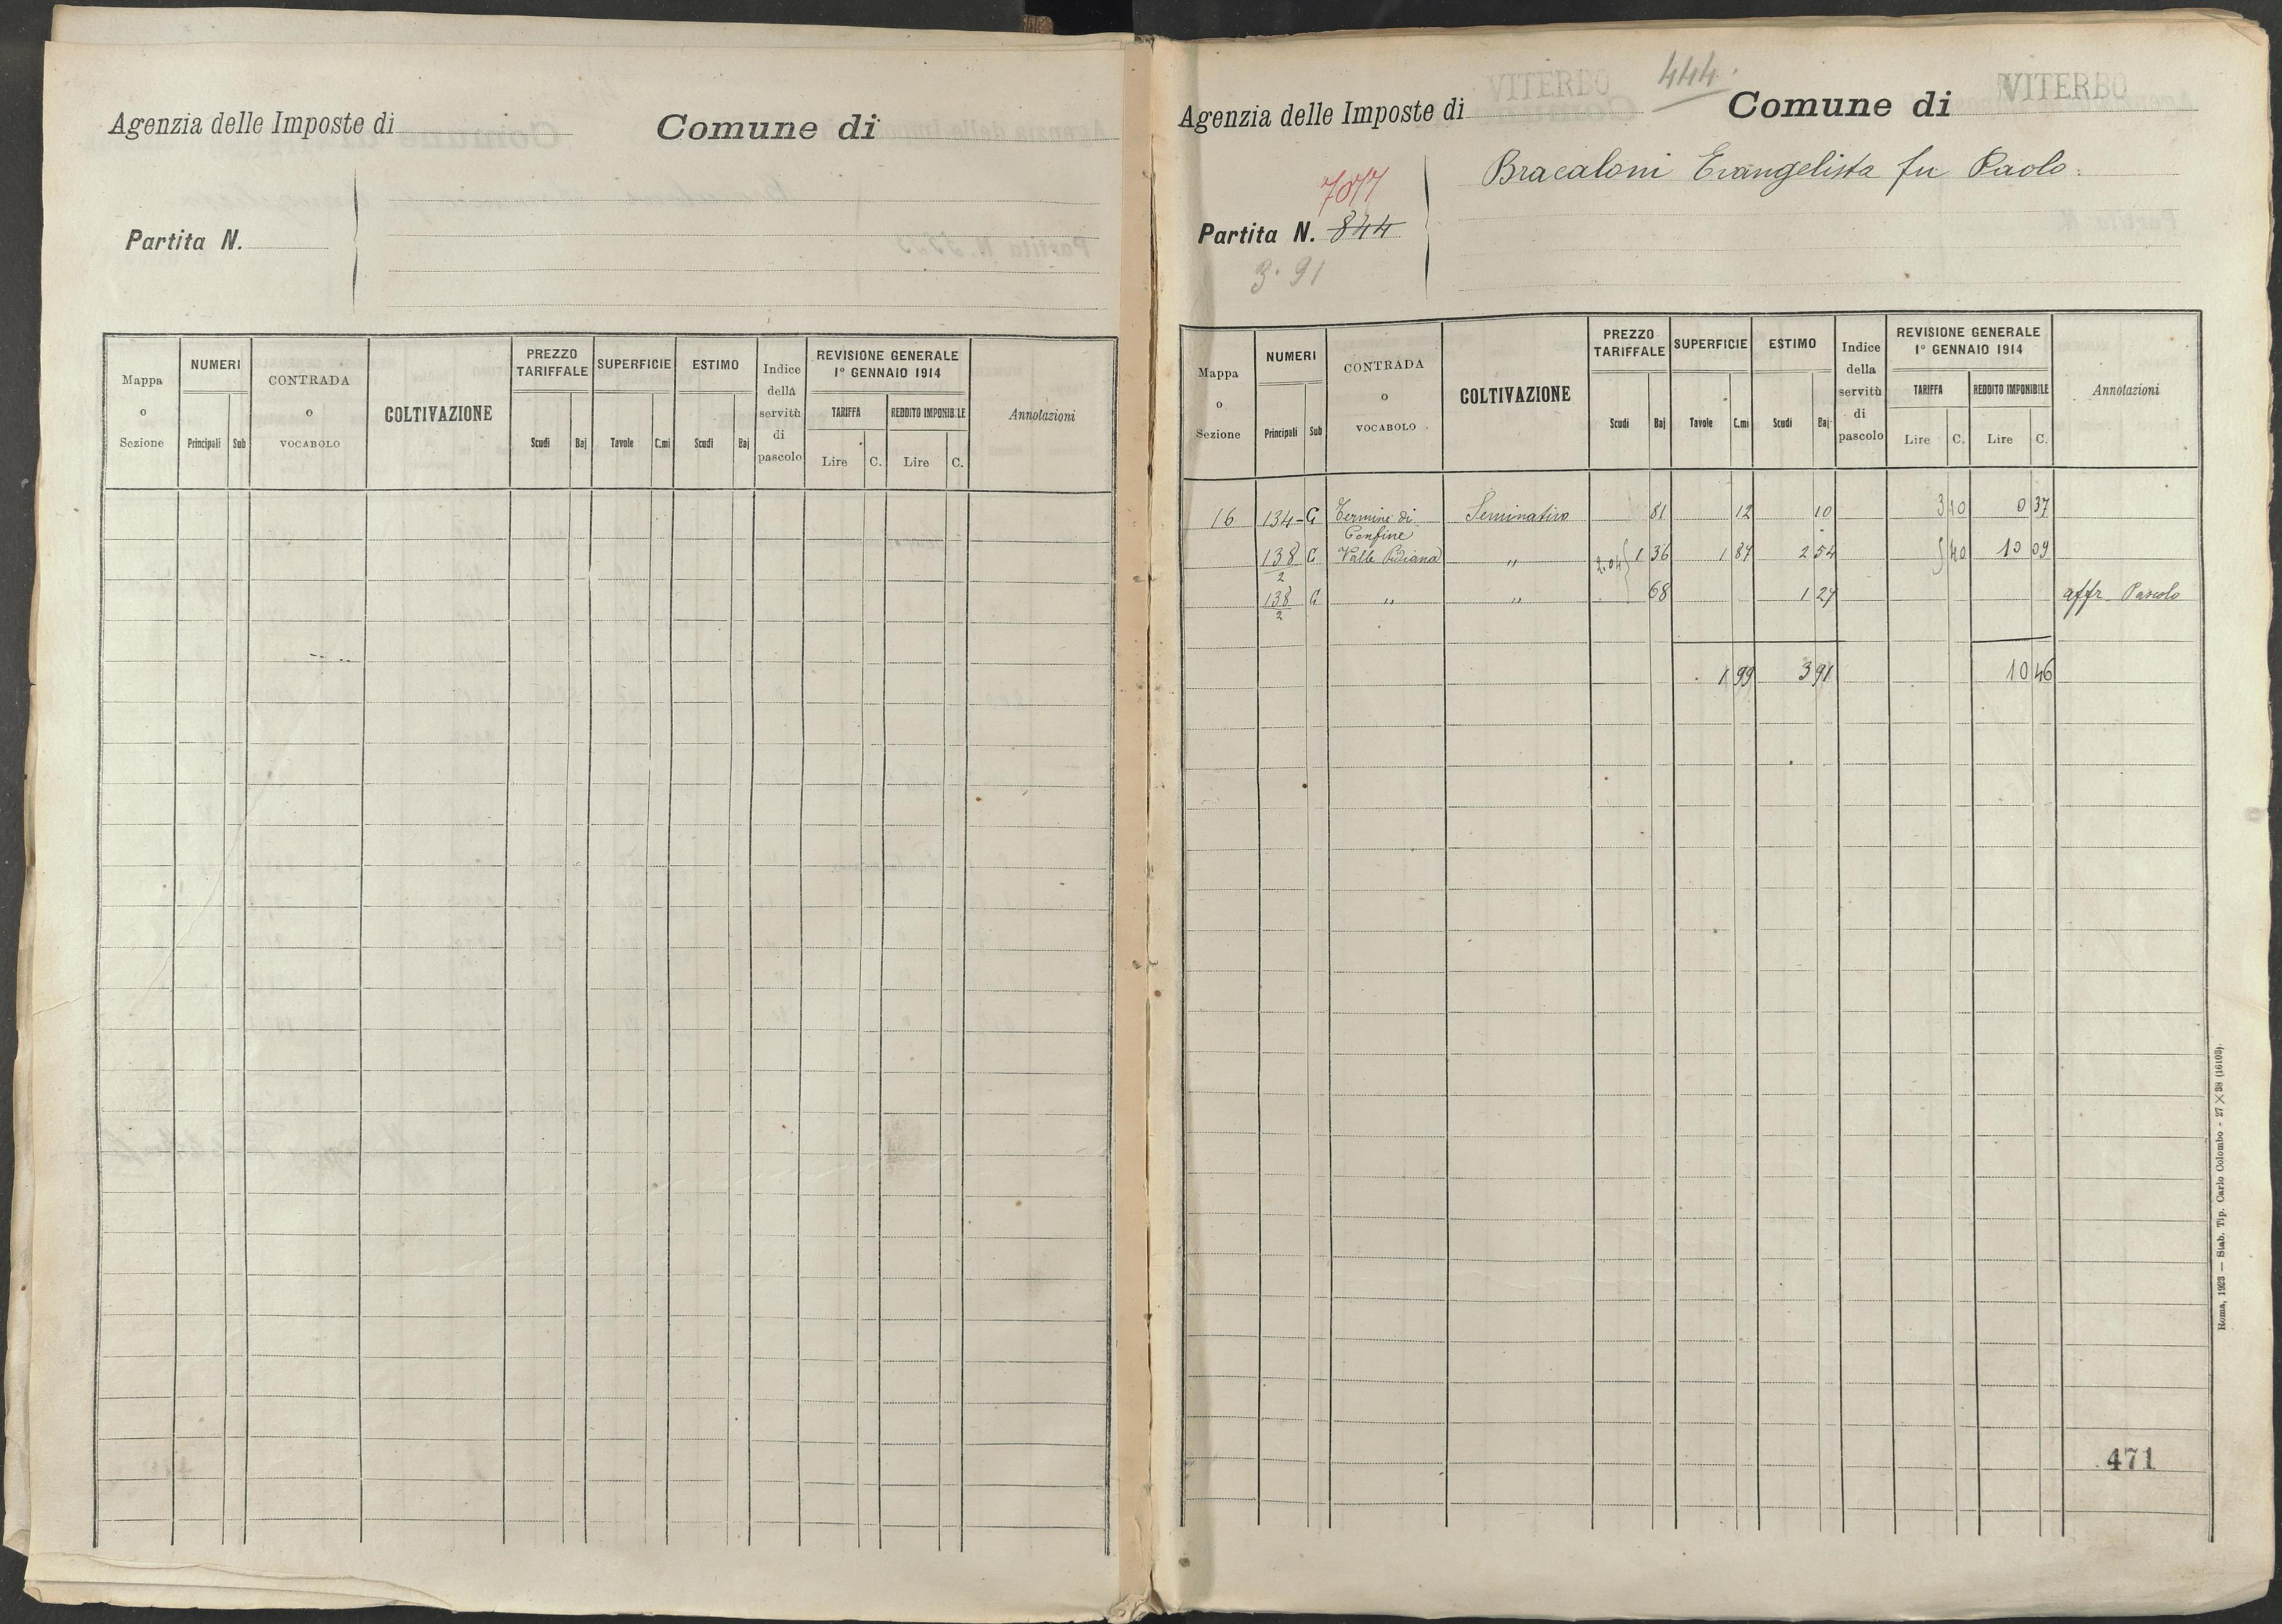 Agenzia delle Imposte di
Comune di
Partita N.
Mappa o Sezione
NUMERI
Principali Sub
CONTRADA o VOCABOLO
COLTIVAZIONE
PREZZO TARIFFALE
Scudi Baj
SUPERFICIE
Tavole C.mi
ESTIMO
Scudi Baj
Indice della servitù di pascolo
REVISIONE GENERALE
1° GENNAIO 1914
TARIFFA REDDITO IMPONIBILE
Lire C. Lire C.
Annotazioni
444
Agenzia delle Imposte di VITERBO Comune di VITERBO
Bracaloni Evangelista fu Paolo
Partita N. 844
3.91
Mappa o Sezione
NUMERI
Principali Sub
CONTRADA o VOCABOLO
COLTIVAZIONE
PREZZO TARIFFALE
Scudi Baj
SUPERFICIE
Tavole C.mi
ESTIMO
Scudi Baj
Indice della servitù di pascolo
REVISIONE GENERALE
1° GENNAIO 1914
TARIFFA REDDITO IMPONIBILE
Lire C. Lire C.
Annotazioni
16 134 Termine di Confine Seminativo 81 12 10 3 10 0 37
138/2 Valle " 2.04 1 36 1 87 2 54 5 40 10 09
138/2 " " 68 1 27 affr. Pascolo
1 99 3 91 10 46
471
Roma, 1923 — Stab. Tip. Carlo Colombo - 27 × 38 (16103).